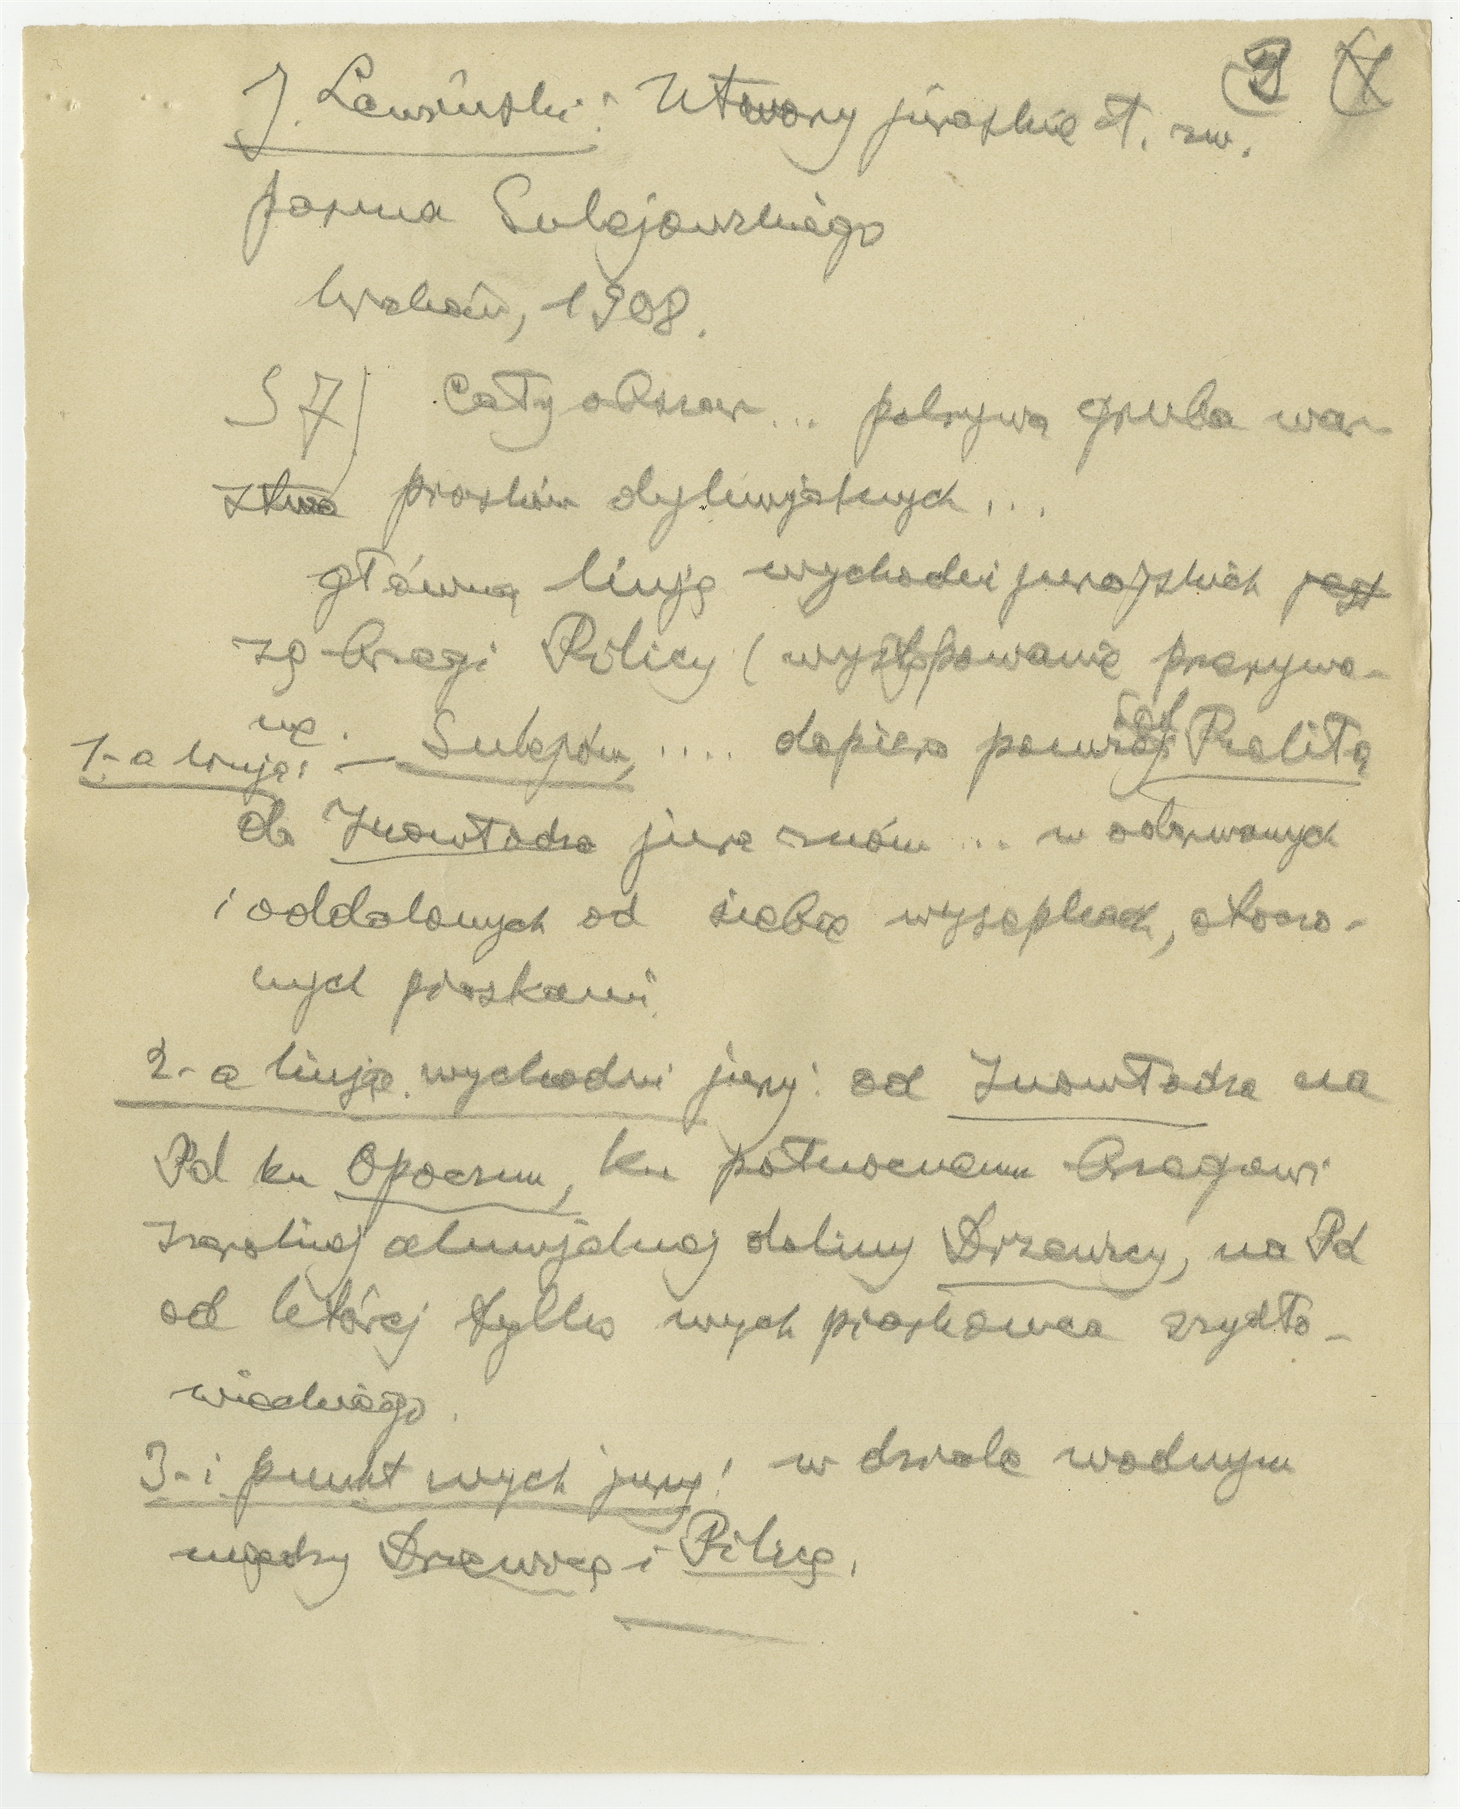 J. Lewiński: Utwory jurajskie t. zw.
pasma Sulejowskiego
Kraków, 1908.
S 7) Cały obszar ... pokrywa gruba war-
stwa piasków dyluwjalnych ...
główną linję wychodni jurajskich jest
są brzegi Pilicy (występowanie przerywa-
ne.
1-a linja: — Sulejów, .... dopiero poniżej Żół Prolitą
do Inowłodza jura znów ... w oderwanych
i oddalonych od siebie wysepkach, otoczo-
nych piaskami.
2-a linja wychodni jury: od Inowłodza na
Pd ku Opocznu, ku północnemu brzegowi
szerokiej aluwjalnej doliny Drzewicy, na Pd
od której tylko wych piaskowca szydło-
wieckiego.
3-i punkt wych jury: w dziale wodnym
między Drzewicą i Pilicą.